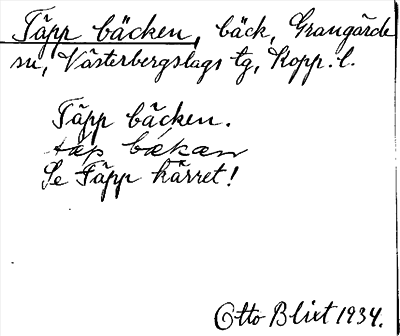 Täpp bäcken, bäck, Grangärde
sn, Västerbergslags tg, Kopp. l.
Täpp bäcken.
tæp bækæn
Se Täpp kärret!
Otto Blixt 1934.